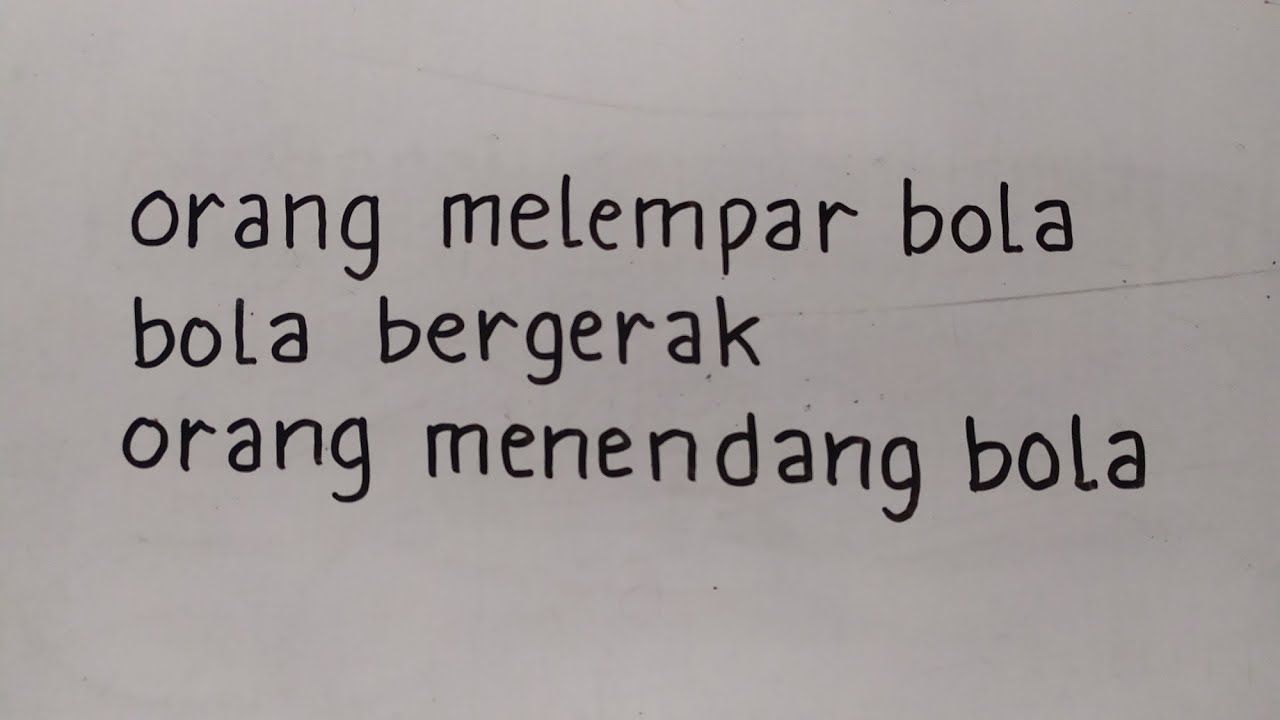 orang melempar bola
bola bergerak
orang menendang bola